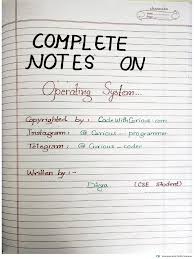 COMPLETE
NOTES ON
Operating System...
Copyrighted by : CodeWithCurious.com
Instagram : @ Curious - programmer
Telegram : @ Curious - coder
Written by :-
(CSE Student)